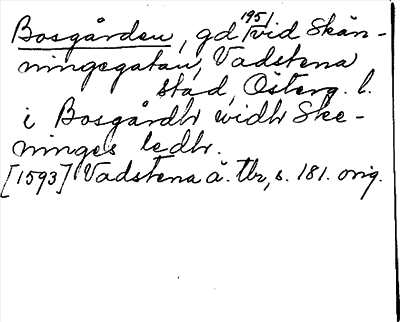 Bosgården, gd 1951 vid Skän-
ningegatan, Vadstena
stad, Österg. l.
i Bosgårdh widh Ske-
ninges ledhr.
[1593] Vadstena ä. tbr, s. 181. orig.